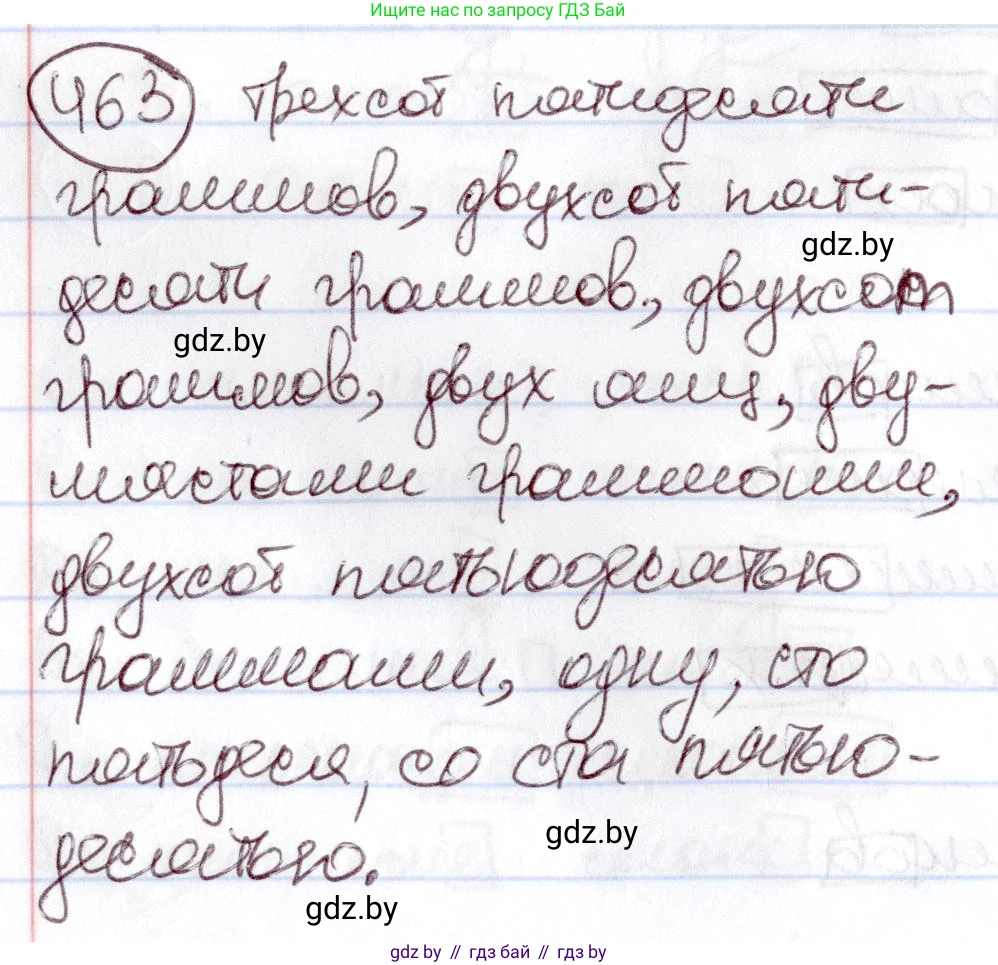 Ищите нас по запросу ГДЗ Бай
463 Трехсот пятидесяти
граммов, двухсот пяти-
gdz.by
десяти граммов, двухсот
gdz.by
граммов, двух яиц, дву-
мястами граммами,
двухсот пятьюдесятью
граммами, одну, сто
пятьдеся, со ста пятью-
gdz.by
десятью.
gdz.by
gdz by // гдз бай // гдз by